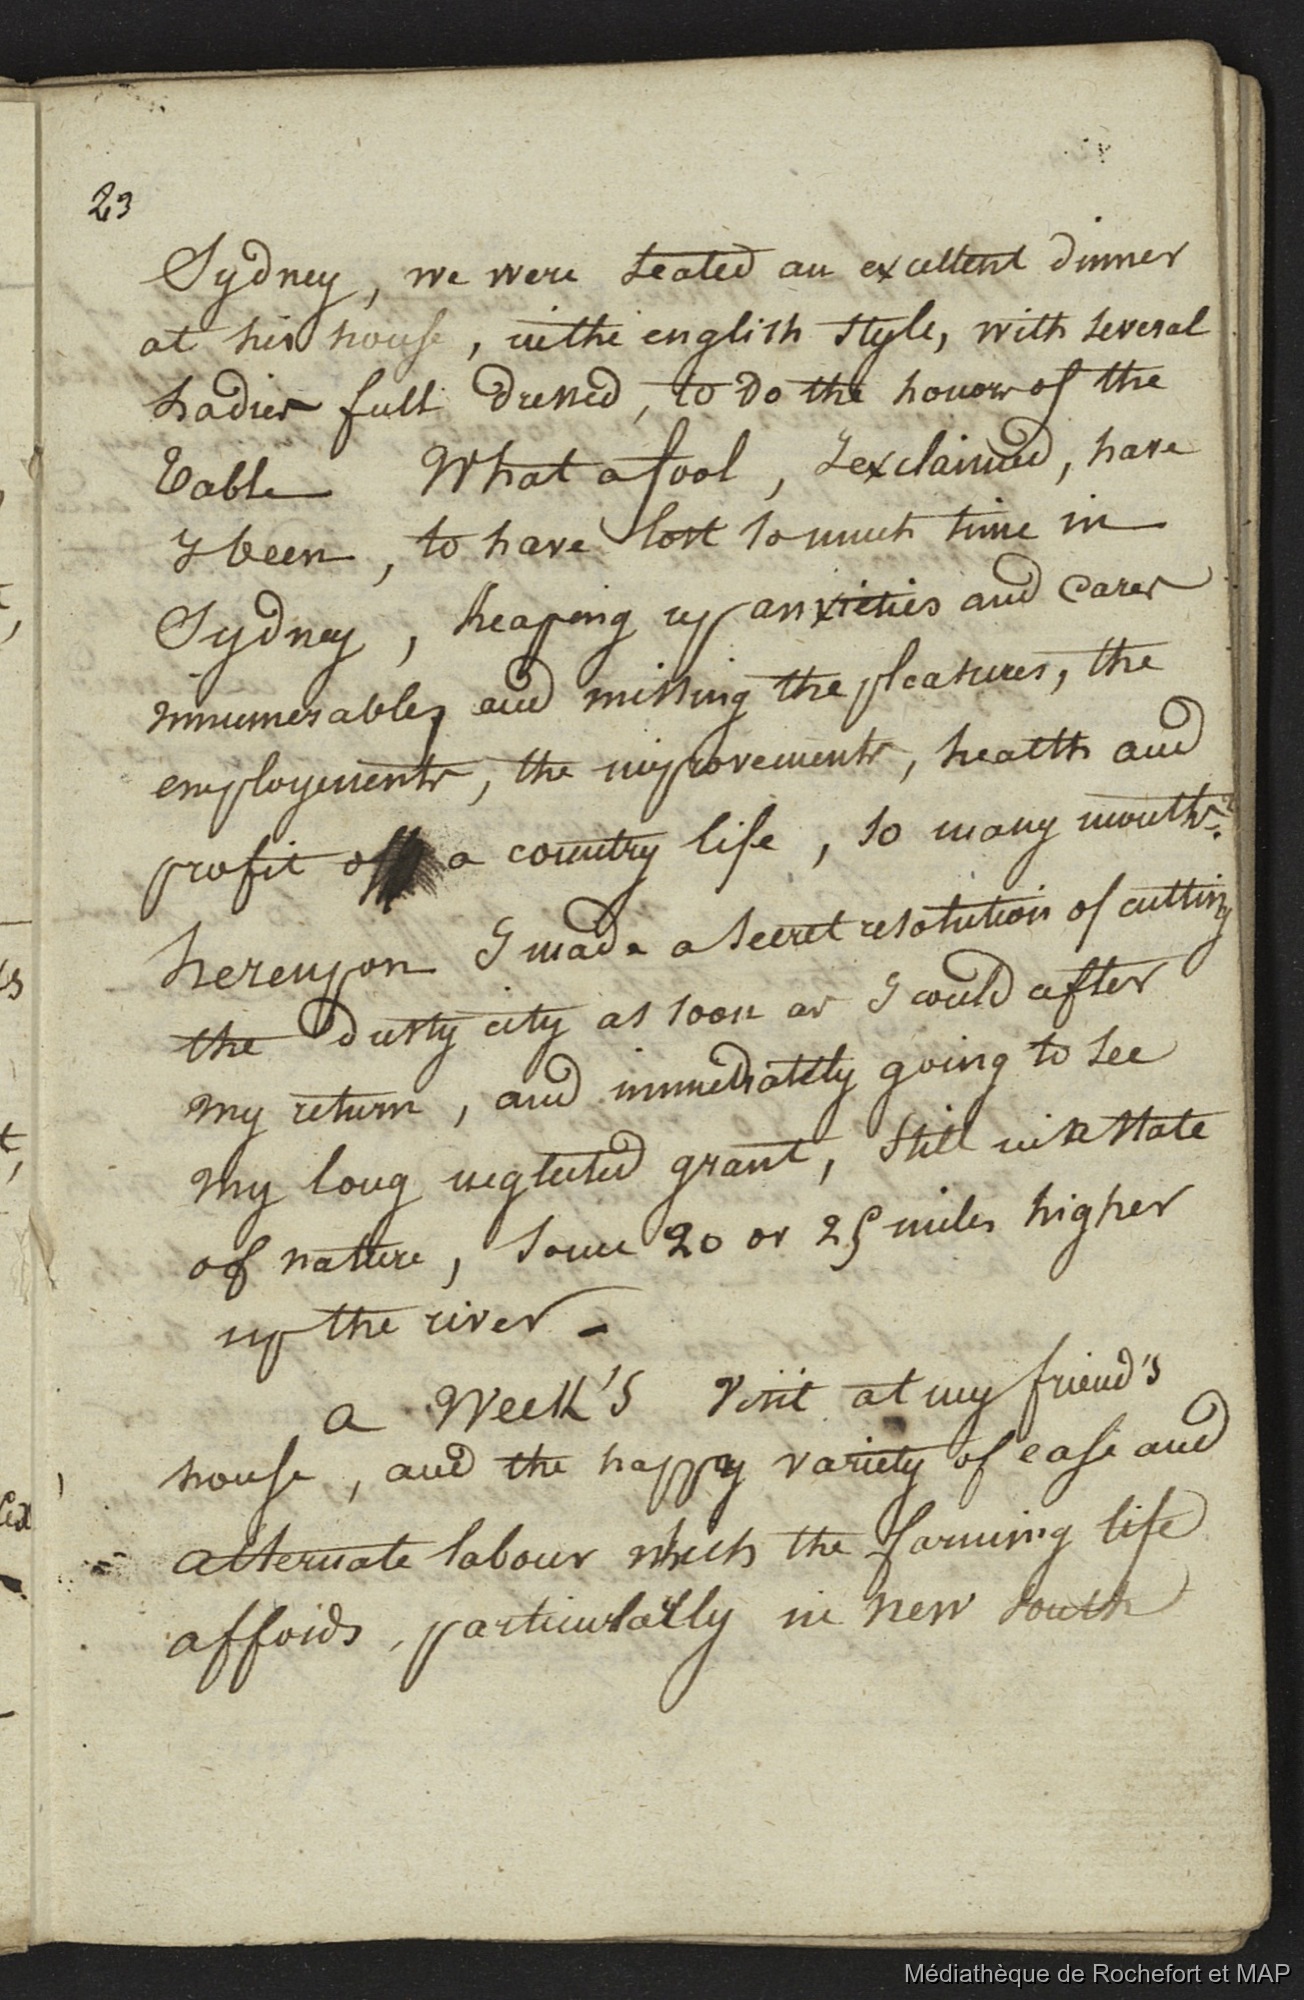 23
Sydney, we were seated an excellent dinner
at his house, in the english style, with several
ladies full dressed, to do the honor of the
table What a fool, I exclaimed, have
I been, to have lost so much time in
Sydney, heaping up anxieties and cares
innumerables and missing the pleasures, the
employements, the improvements, health and
profit of a country life, so many months.
hereupon I made a secret resolution of cutting
the dusty city as soon as I could after
my return, and immediately going to see
my long neglected grant, still in the state
of nature, some 20 or 25 miles higher
up the river -
a Week's visit at my friend's
house, and the happy variety of ease and
alternate labour which the farming life
affords, particularly in new south
Médiathèque de Rochefort et MAP